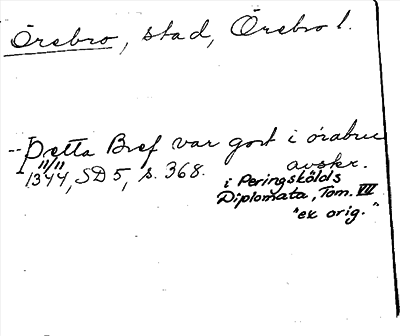 Örebro, stad, Örebro l.
--þetta Bref var gort i örabru
11/11
1344, SD 5, s. 368. avskr.
i Peringskölds
Diplomata, Tom. VII
"ex orig."